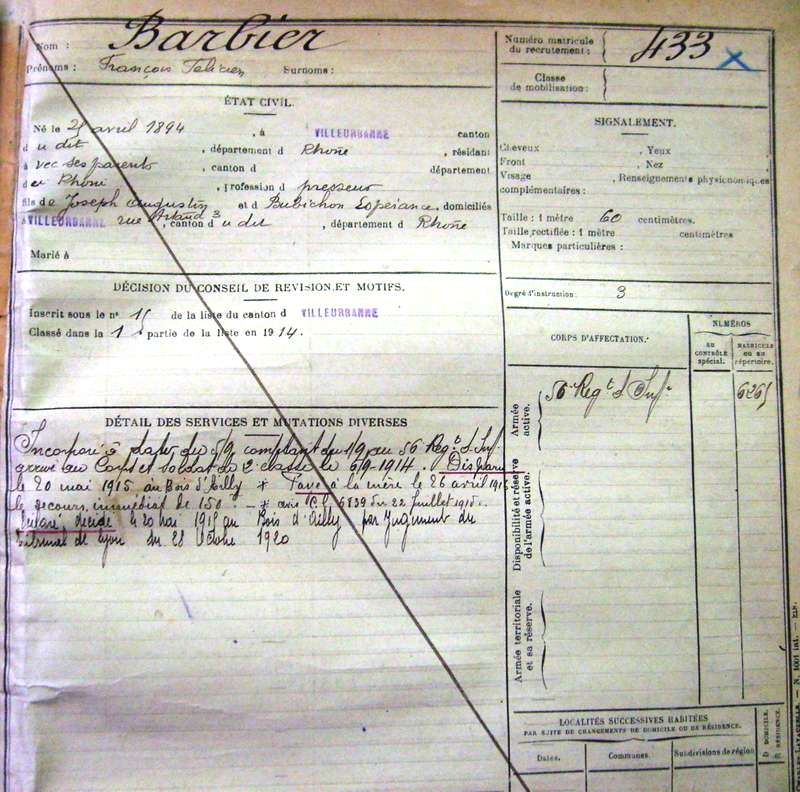 Nom : Barbier
Prénoms : François Félicien Surnoms :
Numéro matricule du recrutement : 433
Classe de mobilisation :
ÉTAT CIVIL.
Né le 21 avril 1894, à VILLEURBANNE canton
du dit, département du Rhône, résidant
à vec ses parents, canton d département
du Rhône, profession de presseur
fils de Joseph Augustin et d Bubichon Espérance, domiciliés
à VILLEURBANNE rue 3, canton du dit, département du Rhône
Marié à
SIGNALEMENT.
Cheveux , Yeux
Front , Nez
Visage , Renseignements physionomiques
complémentaires :
Taille : 1 mètre 60 centimètres.
Taille rectifiée : 1 mètre centimètres
Marques particulières :
Degré d'instruction : 3
DÉCISION DU CONSEIL DE REVISION ET MOTIFS.
Inscrit sous le n° 15 de la liste du canton d VILLEURBANNE
Classé dans la 1 partie de la liste en 1914.
DÉTAIL DES SERVICES ET MUTATIONS DIVERSES
Incorporé à dater du 5/9 comptant du 1/9 au 56 Regt d'Inf
arrivé au Corps et soldat de 2 classe le 6/9-1914. Disparu
le 20 mai 1915 au Bois d'Ailly * Payé à la mère le 26 avril 1916
le secours immédiat de 150 - * avis 6839 du 22 Juillet 1915.
Déclaré décédé le 20 mai 1915 au Bois d'Ailly par Jugement du
tribunal de Lyon du 28 Octobre 1920
CORPS D'AFFECTATION.
NUMÉROS
AU CONTRÔLE spécial.
MATRICULE ou au répertoire.
Armée active.
56 Regt d'Infie
6265
Disponibilité et réserve de l'armée active.
Armée territoriale et sa réserve.
LOCALITÉS SUCCESSIVES HABITÉES
PAR SUITE DE CHANGEMENTS DE DOMICILE OU DE RÉSIDENCE.
Dates. Communes. Subdivisions de région
D DOMICILE.
R RÉSIDENCE.